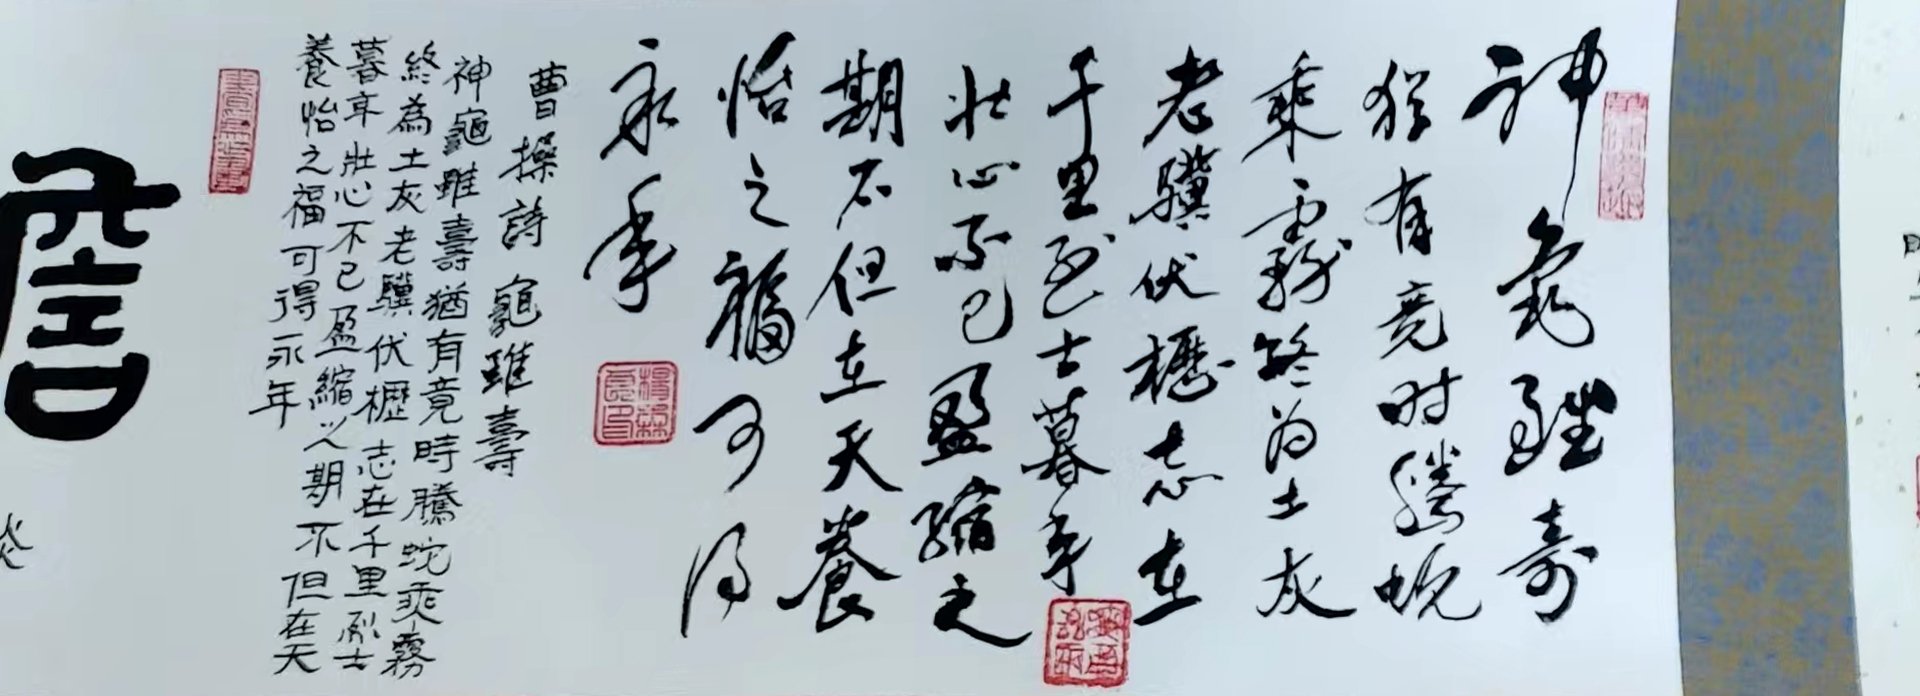 神龜雖寿
猶有竟时騰蛇
乘霧終为土灰
老驥伏櫪志在
千里烈士暮年
壮心不已盈縮之
期不但在天養
怡之福可得
永年
曹操詩 龜雖壽
神龜雖壽猶有竟時騰蛇乘霧
終為土灰老驥伏櫪志在千里烈士
暮年壯心不已盈縮之期不但在天
養怡之福可得永年